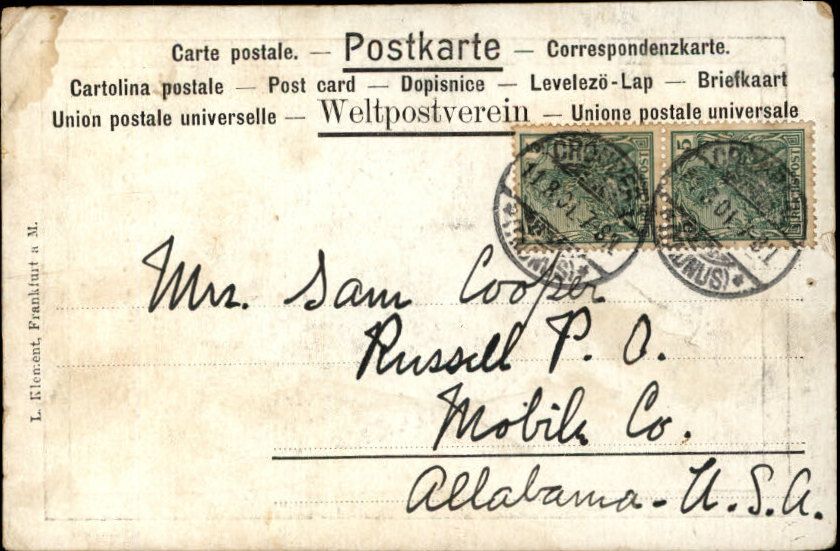 Carte postale. — Postkarte — Correspondenzkarte.
Cartolina postale — Post card — Dopisnice — Levelezö-Lap — Briefkaart
Union postale universelle — Weltpostverein — Unione postale universale
5
REICHSPOST
11.8.01. 7-8N.
(TAUNUS)
Mrs. Sam Cooper
Russell P. O.
Mobile Co.
Allabama - U. S. A.
L. Klement, Frankfurt a M.